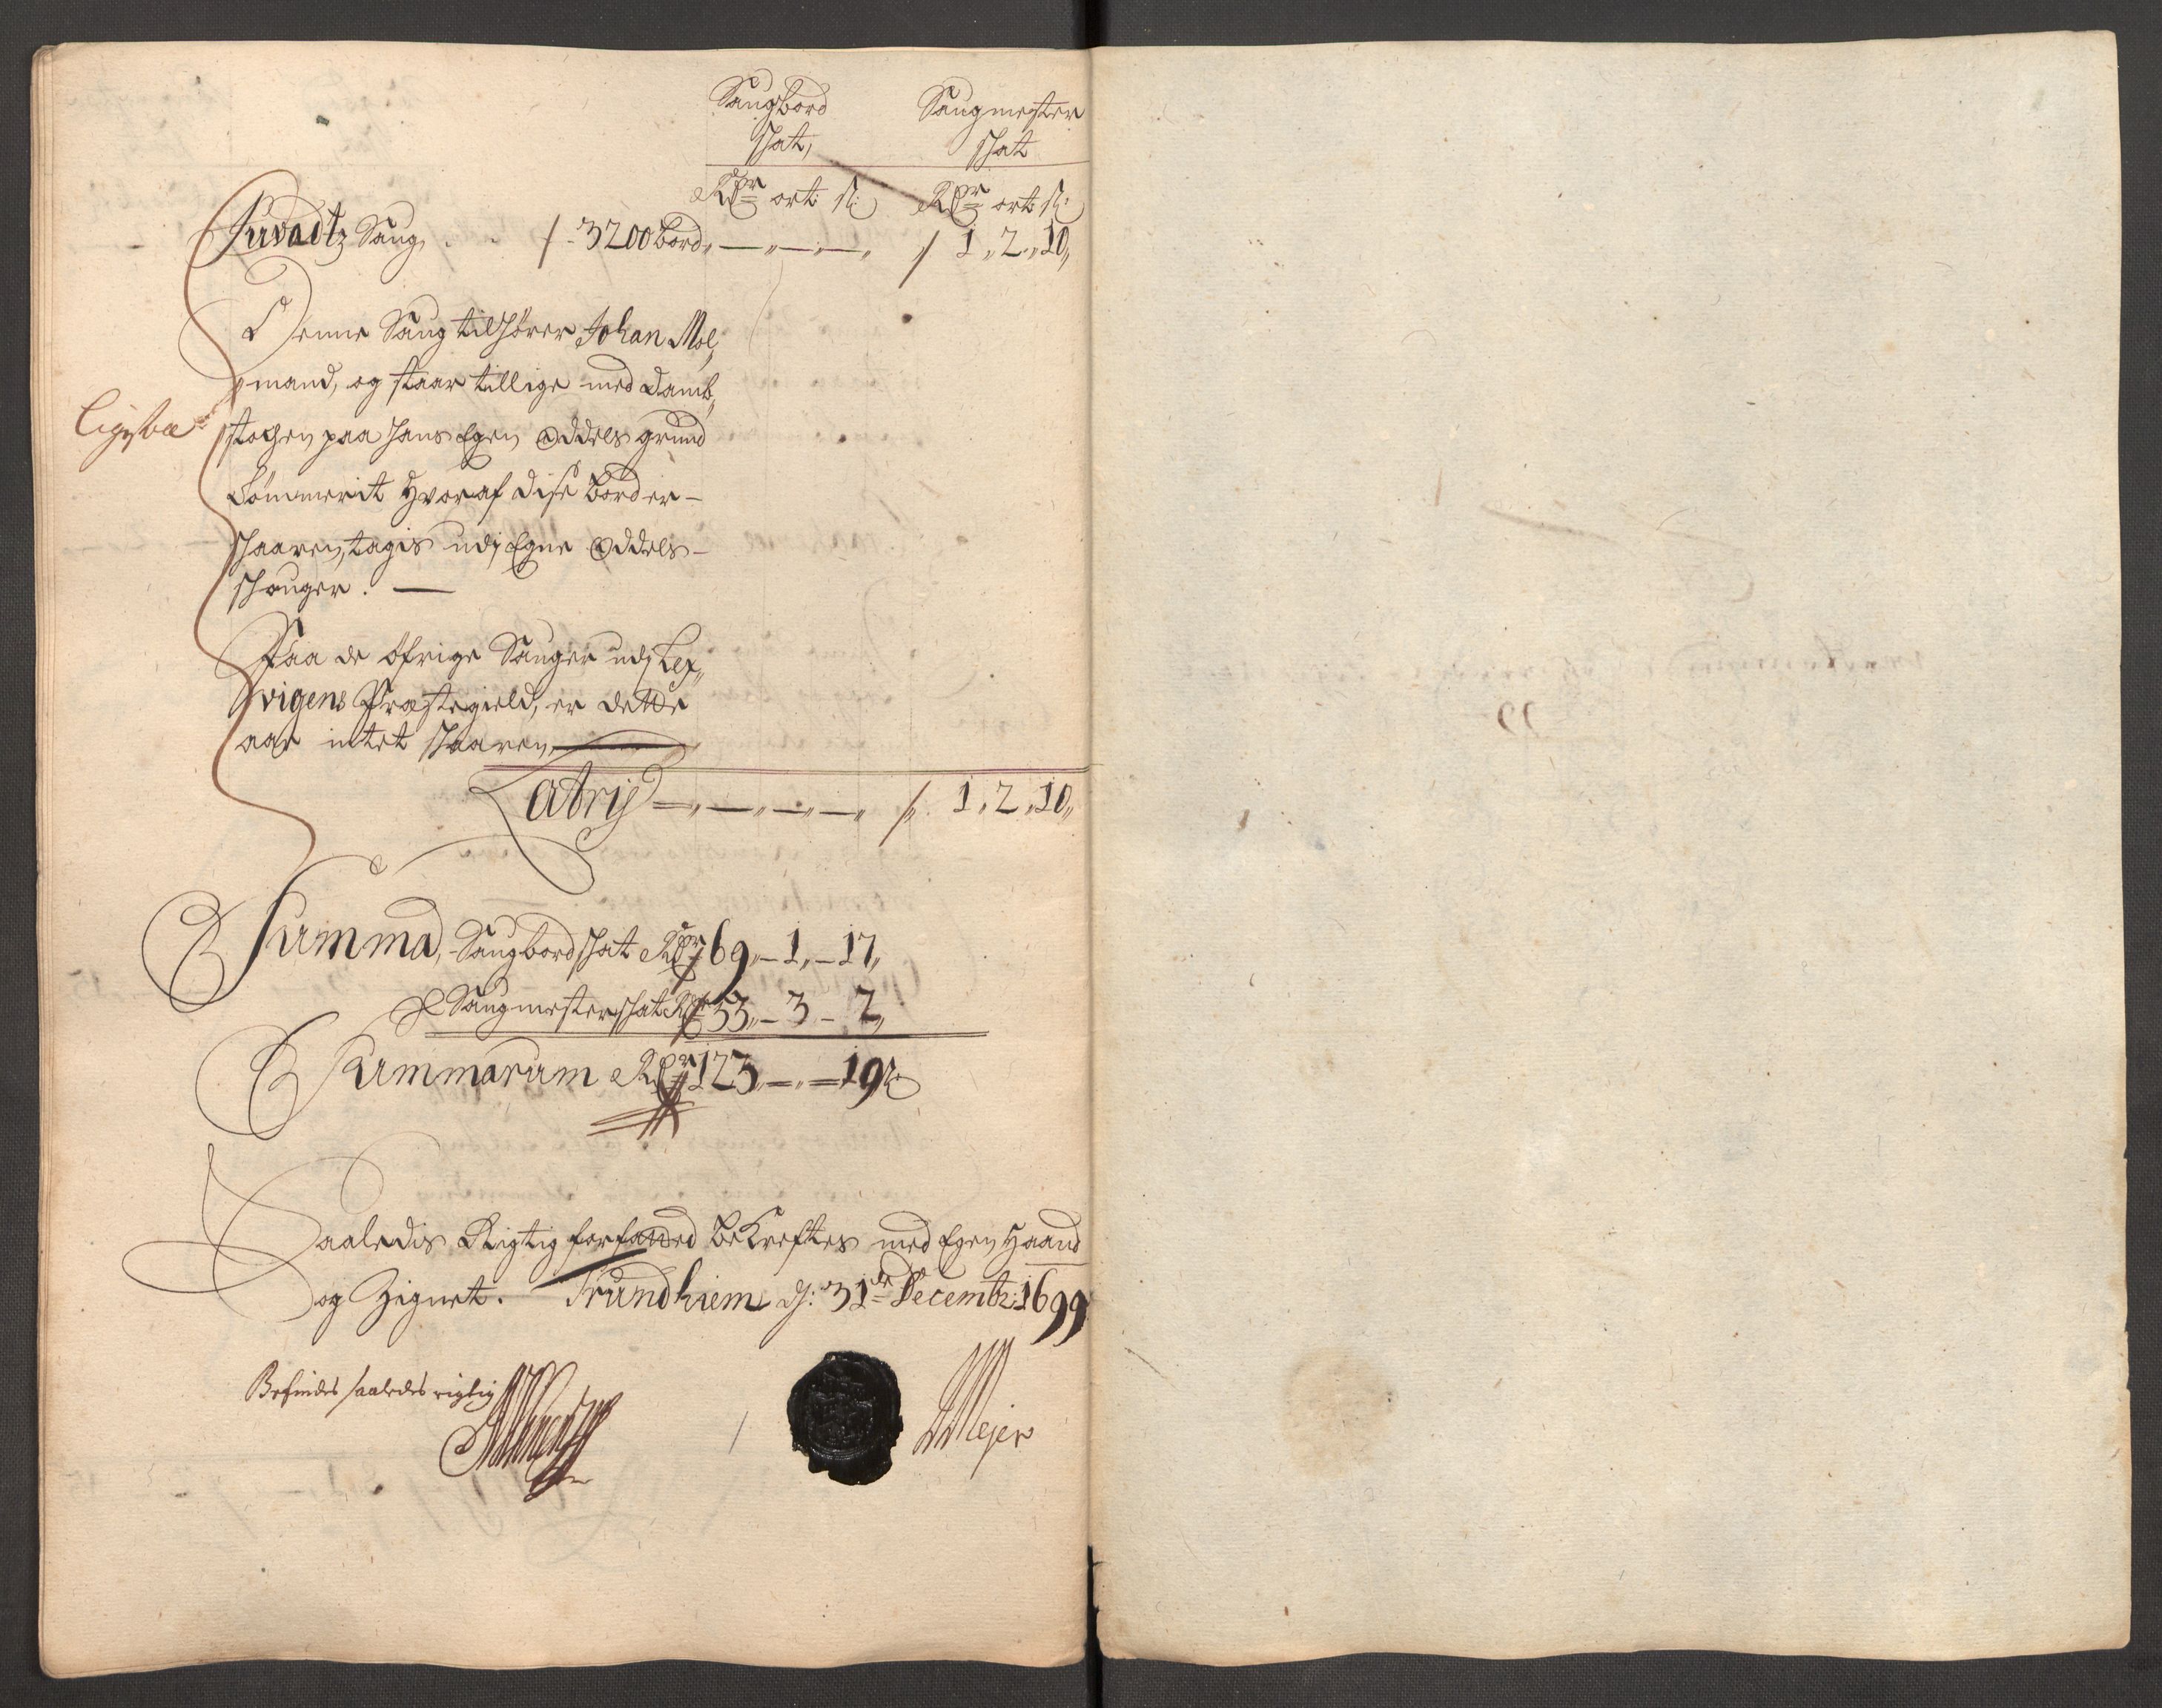 Saugbord Saugmester
skat, skat
Rdr ort s: Rdr ort s:
Saug, 3200 bord 1,, 2,, 10,,
Denne Saug tilhører Johan Mol,,
mand, og staar tillige med Damb,,
stochen paa hans Egen Oddels grund
Hvoraf disse Border-
skaaren, tagis udj Egne Oddels-
skouger.
Ligesaa
Paa de öfrige Sauger udj Lex,,
vigens Præstegield, er dette
aar intet skaaren
Latris 1,, 2,, 10,,
Summa, Saugbordskat Rdr 69,,-1,,-17,,
Saugmesterskat Rdr 53,,-3-2,,
Summarum Rdr 123,,-,,-19 s
Saaledis Rigtig forfatted bekreftes med Egen Haand
og Zignet. Trundhiem d: 31de Decembr: 1699
Befindes saaledes rigtig
Mejer